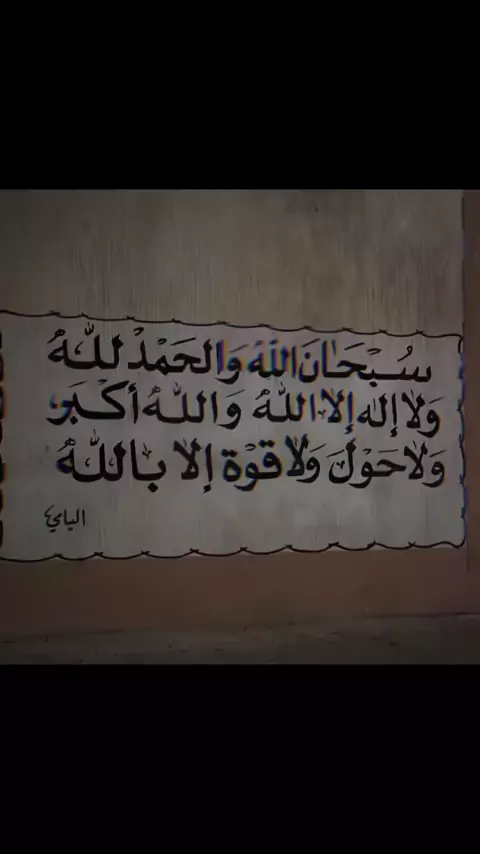 سُبْحَانَ اللهِ وَالحَمْدُ للهِ
وَلا إله إلا اللهُ وَاللهُ أكْبَر
وَلا حَوْلَ وَلا قوّة إلا باللهِ